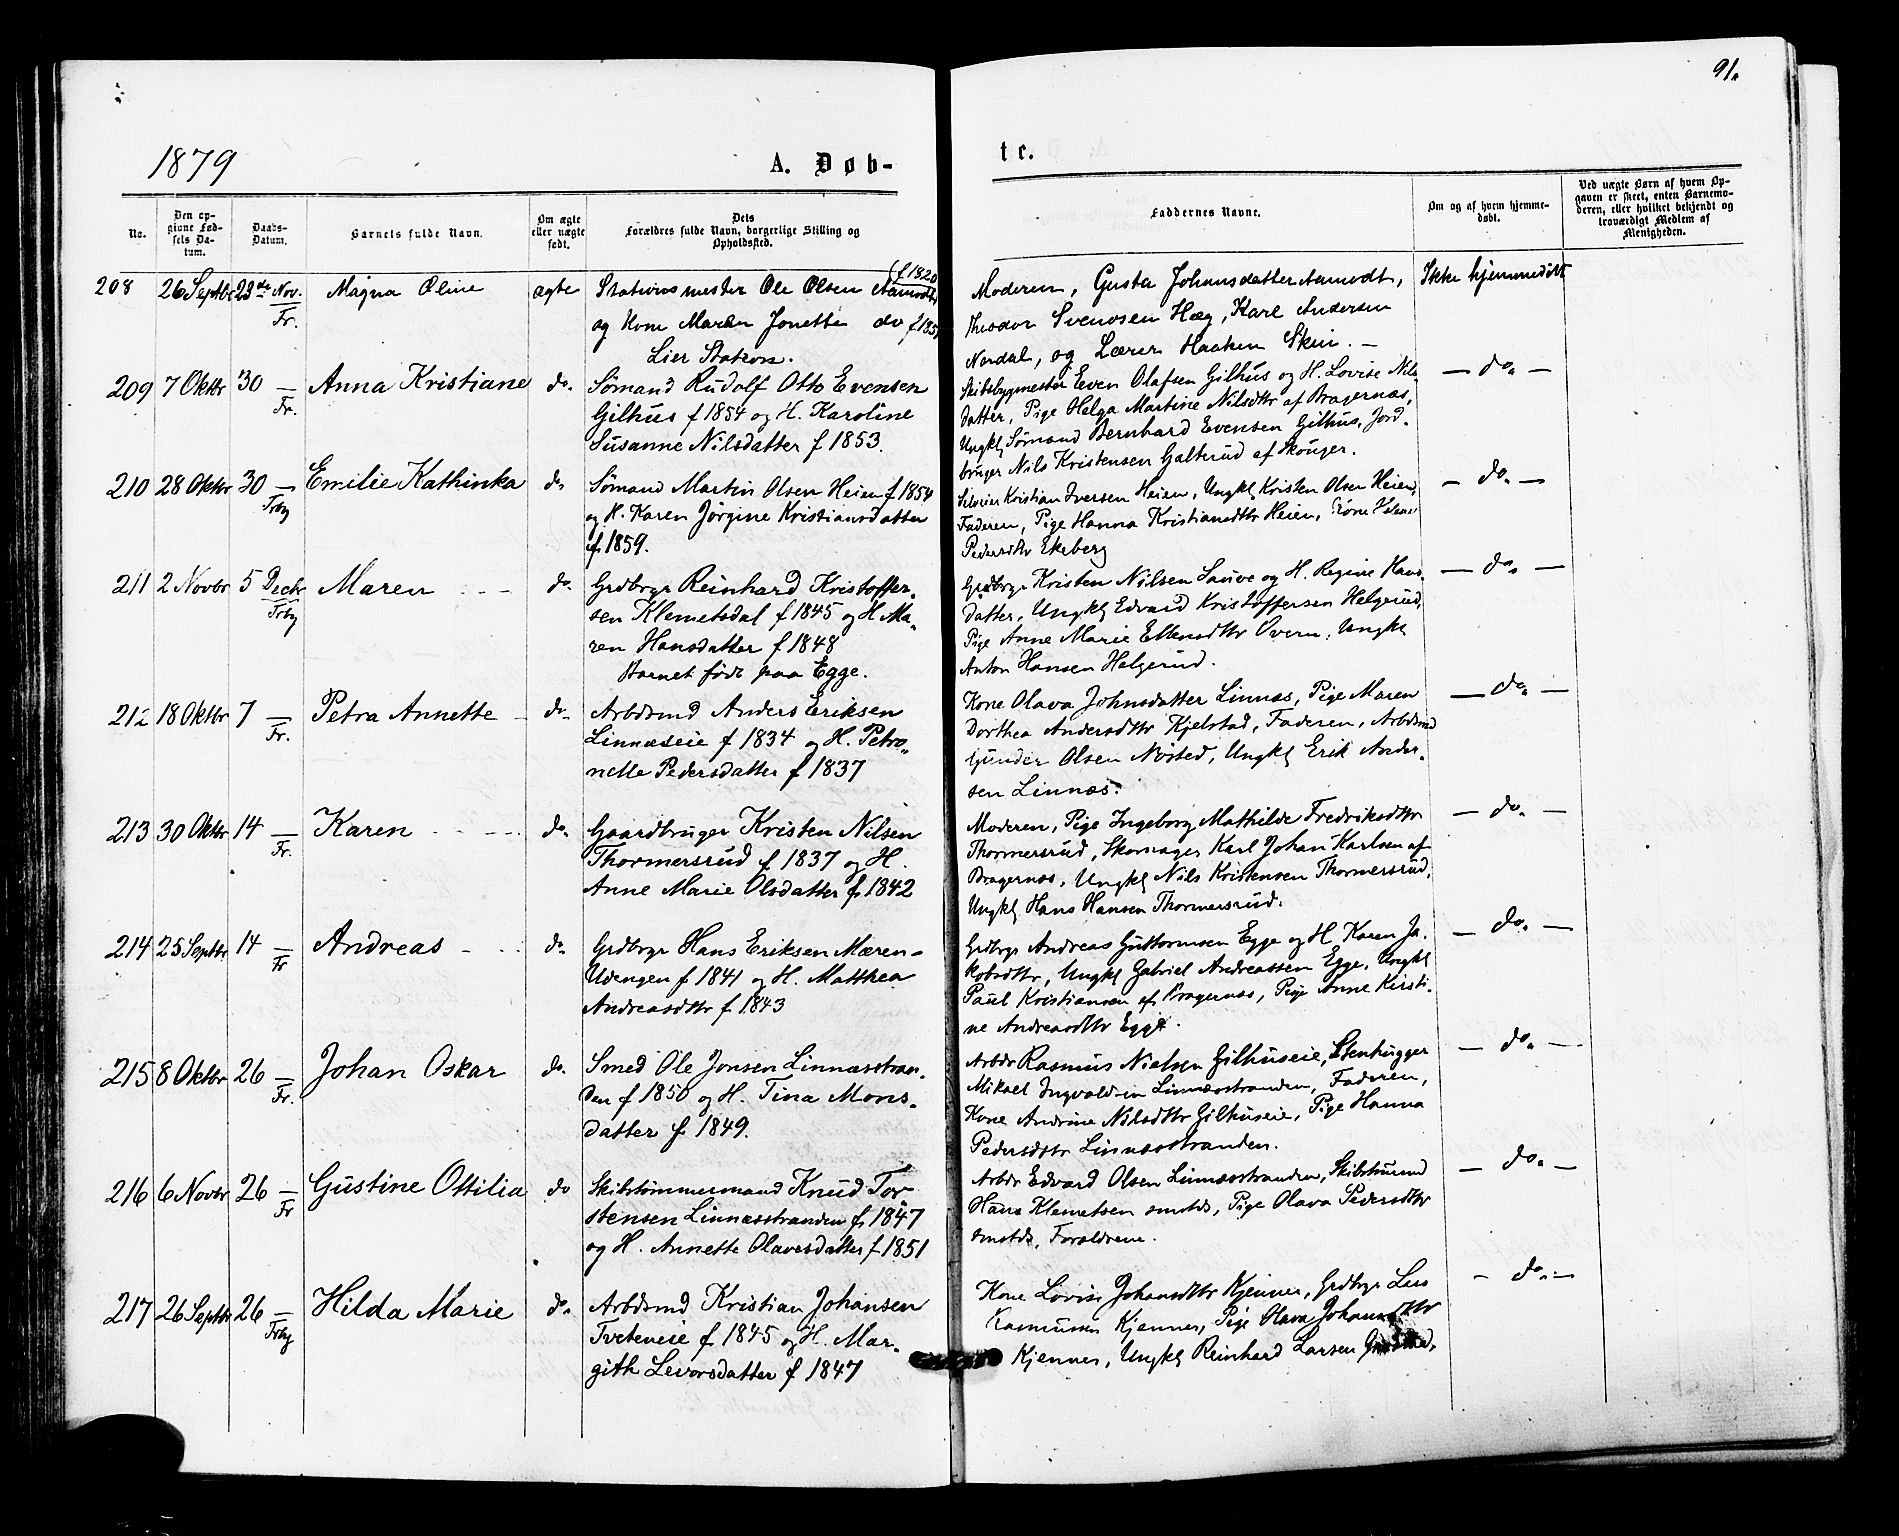 91.
1879
A. Døb-
te.
No.
Den op-
givne Fød-
sels Da-
tum.
Daabs-
Datum.
Barnets fulde Navn.
Om ægte
eller uægte
født.
Dets
Forældres fulde Navn, borgerlige Stilling og
Opholdssted.
Faddernes Navne.
Om og af hvem hjemme-
døbt.
Ved uægte Børn af hvem Op-
gaven er skeet, enten Barnemo-
deren, eller hvilket bekjendt og
troværdigt Medlem af
Menigheden.
208 26 Septbr 23de Nov. Fr. Magna Oline ægte
Stationsmester Ole Olsen Aamodt, f 1820
og Kone Maren Jonette do f 185
Lier Station.
Moderen, Gusta Johansdatter Aamodt,
Theodor Svendsen Hæg, Karl Andersen
Nordal, og Lærer Haaken Skin. —
Ikke hjemmedøbt
209 7 Oktbr 30 — Fr. Anna Kristiane do.
Sømand Rudolf Otto Evensen
Gilhus f 1854 og H. Karoline
Susanne Nilsdatter f 1853.
Skibsbygmester Even Olafsen Gilhus og H. Lovise Nils-
datter, Pige Helga Martine Nilsdtr af Bragernæs,
Ungkl Sømand Bernhard Evensen Gilhus, Jord-
bruger Nils Kristensen Galterud af Skouger.
— do. —
210 28 Oktbr 30 — Frby Emilie Kathinka do
Sømand Martin Olsen Heien f 1854
og H. Karen Jørgine Kristiansdatter
f 1859.
Selveier Kristian Iversen Heien, Ungkl Kristen Olsen Heien,
Faderen, Pige Hanna Kristiansdtr Heien, Helene
Pedersdtr Ekeberg
— do. —
211 2 Novbr 5 Decbr Frby Maren do.
Grdbrgr Reinhard Kristoffer-
sen Klemetsdal f 1845 og H Ma-
ren Hansdatter f 1848
Barnet født paa Egge.
Grdbrgr Kristen Nilsen Sauve og H. Regine Hans-
datter, Ungkl Edvard Kristoffersen Helgerud,
Pige Anne Marie Ellensdtr Overn, Ungkl
Anton Hansen Helgerud.
— do. —
212 18 Oktbr 7 — Fr. Petra Annette — do.
Arbdsmd Anders Eriksen
Linnæseie f 1834 og H. Petro-
nelle Pedersdatter f 1837
Kone Olava Johnsdatter Linnæs, Pige Maren
Dorthea Andersdtr Kjelstad, Faderen, Arbdsmd
Gunder Olsen Nøsted, Ungkl Erik Ander-
sen Linnæs.
— do. —
213 30 Oktbr 14 — Fr. Karen do.
Gaardbruger Kristen Nilsen
Thormersrud f 1837 og H.
Anne Marie Olsdatter f 1842
Moderen, Pige Ingeborg Mathilde Fredriksdtr
Thormersrud, Skomager Karl Johan Karlsen af
Bragernæs, Ungkl Nils Kristensen Thormersrud,
Ungkl Hans Hansen Thormersrud.
— do. —
214 25 Septbr 14 — Fr Andreas do.
Grdbrgr Hans Eriksen Mæren-
Udengen f 1841 og H. Matthea
Andreasdtr f 1843
Grdbrgr Andreas Guttormsen Egge og H. Karen Ja-
kobsdtr, Ungkl Gabriel Andreassen Egge, Ungkl
Paul Kristiansen af Bragernæs, Pige Anne Kirsti-
ne Andreasdtr Egge.
— do. —
215 8 Oktbr 26 — Fr. Johan Oskar do.
Smed Ole Jonsen Linnæsstran-
den f 1850 og H. Tina Mons-
datter f 1849.
Arbdr Rasmus Nielsen Gilhuseie, Stenhugger
Mikael Ingvaldsen Linnæsstranden, Faderen,
Kone Andrine Nilsdtr Gilhuseie, Pige Hanna
Pedersdtr Linnæsstranden.
— do. —
216 6 Novbr 26 — Fr Gustine Ottilia do
Skibstømmermand Knud Tor-
stensen Linnæsstranden f 1847
og H. Annette Olavesdatter f 1851
Arbdr Edvard Olsen Linnæsstranden, Skibstmrmd
Hans Klemetsen smstds, Pige Olava Pedersdtr
smstds, Forældrene.
— do. —
217 26 Septbr 26 — Frby Hilda Marie do.
Arbdsmd Kristian Johansen
Tveteneie f 1845 og H. Mar-
gith Levorsdatter f 1847
Kone Lovise Johansdtr Kjenner, Grdbrgr Lars
Rasmussen Kjenner, Pige Olava Johansdtr
Kjenner, Ungkl Reinhard Larsen
— do. —